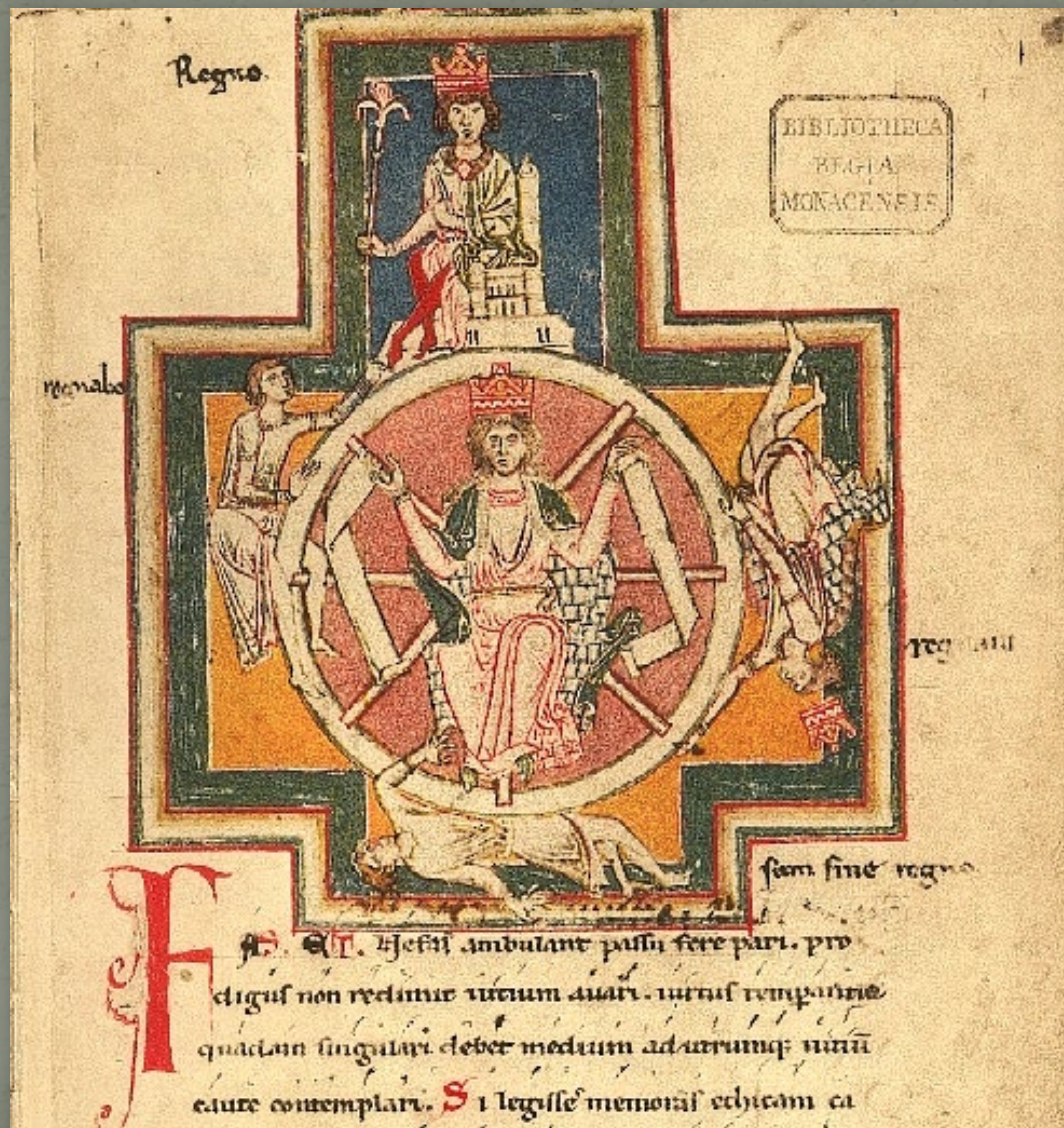 Regno
BIBLIOTHECA
REGIA
MONACENSIS
regnabo
regnaui
sum sine regno
FAS. ET. Nefas ambulant passu fere pari. pro
digus non redimit uitium auari. uirtus temperantia
quadam singulari debet medium ad utrumq; uitiū
caute contemplari. Si legisse memoras ethicam ca